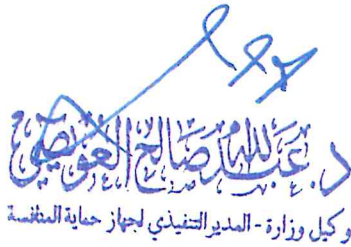 د. عبدالله صالح العويصي
وكيل وزارة - المدير التنفيذي لجهاز حماية المنافسة